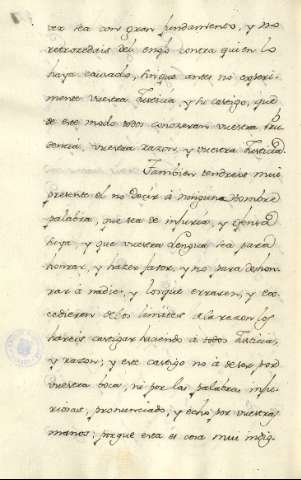 ver sea con gran fundamento, y no
retrocedais del enojo contra quien lo
haya causado, sin que antes no experi-
mente vuestra Justicia, y su castigo, que
de este modo todos conoceran vuestra Pru
dencia, vuestra razon, y vuestra Justicia.
Tambien tendreis mui
presente el no decir à ninguna hombre
palabra, que sea de injuria, y ofensa
suya, y que vuestra Lengua sea para
honrar, y hazer favor, y no para deshon-
rar à nadie, y los que errasen, y exc
cedieren de los limites à la razon los
hareis castigar haciendo à todos Justicia,
y razon; y este castigo no à de ser por
vuestra boca, ni por las palabras inju-
riosas, pronunciado, y echo por vuestras
manos; porque esta es cosa mui indig-